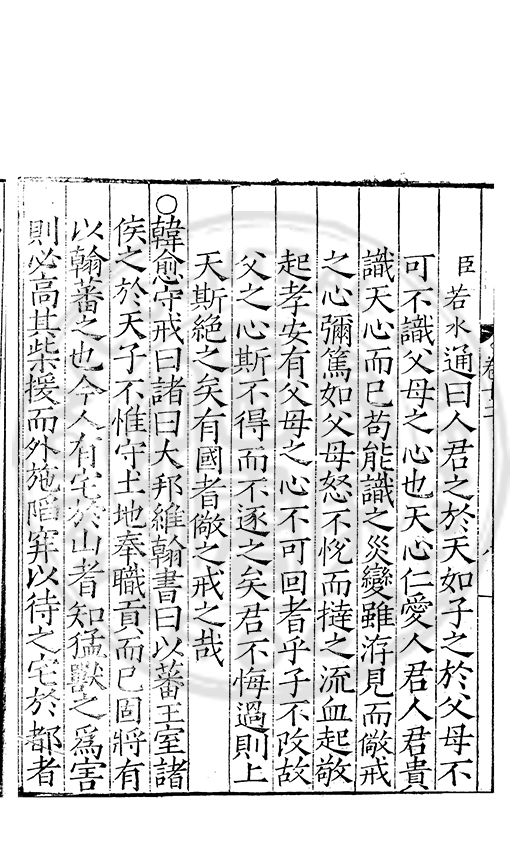 臣若水通曰人君之於天如子之於父母不
可不識父母之心也天心仁愛人君人君貴
識天心而已苟能識之災變雖洊見而儆戒
之心彌篤如父母怒不悅而撻之流血起敬
起孝安有父母之心不可回者乎子不改故
父之心斯不得而不逐之矣君不悔過則上
天斯絶之矣有國者儆之戒之哉
○韓愈守戒曰諸曰大邦維翰書曰以蕃王室諸
侯之於天子不惟守土地奉職貢而已固將有
以翰蕃之也今人有宅於山者知猛獸之爲害
則必高其柴援而外施陷穽以待之宅於都者